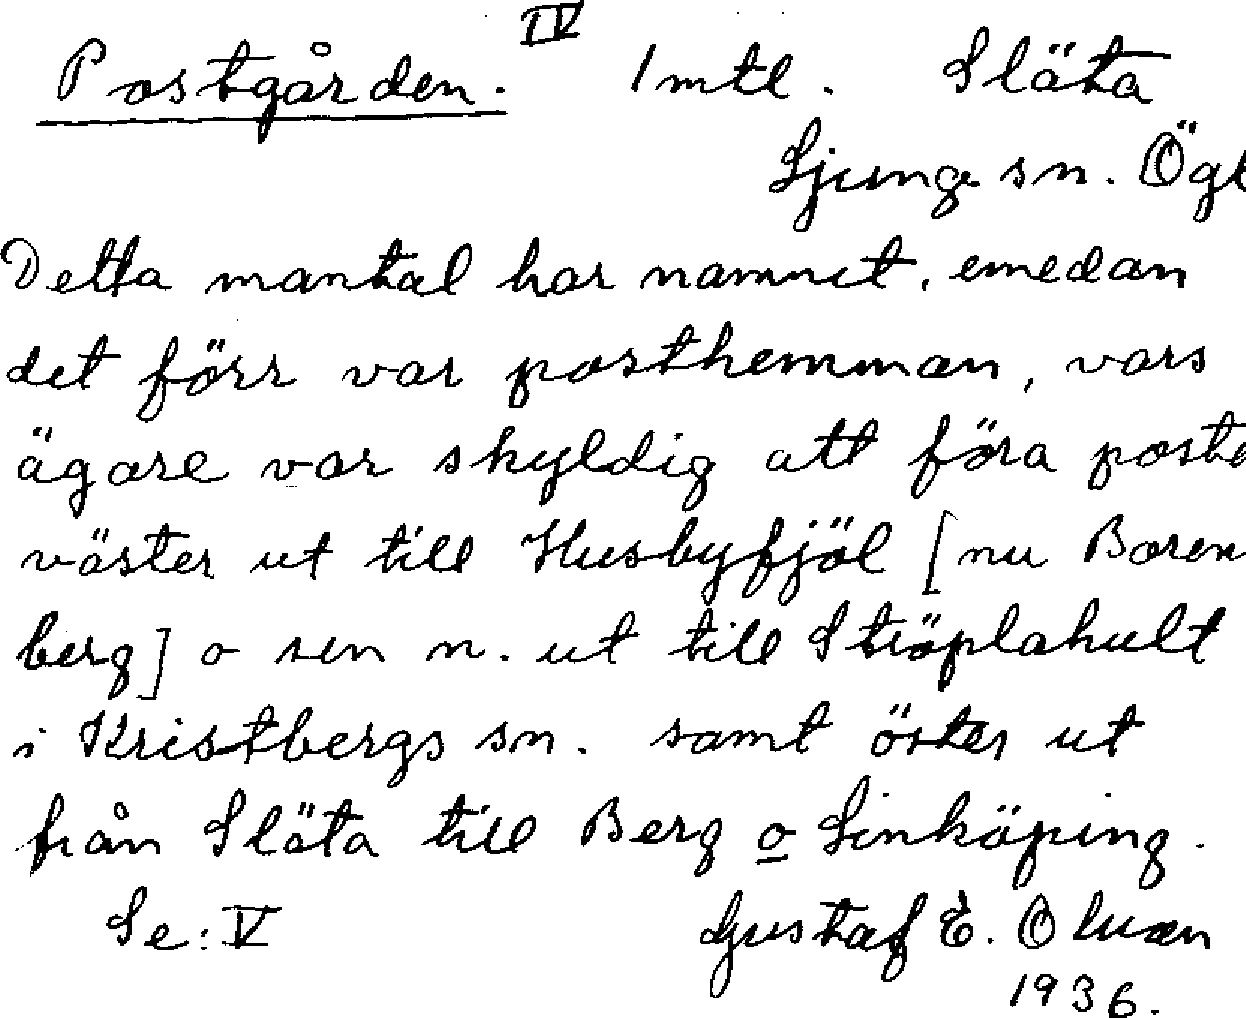 Postgården. IV 1 mtl. Släta
Ljungs sn. Ögl
Detta mantal har namnet, emedan
det förr var posthemman, vars
ägare var skyldig att föra poste
väster ut till Husbyfjöl [nu Boren
berg] o sen n. ut till Ströplahult
i Kristbergs sn. samt öster ut
från Släta till Berg o Linköping.
Se: V Gustaf E.
1936.